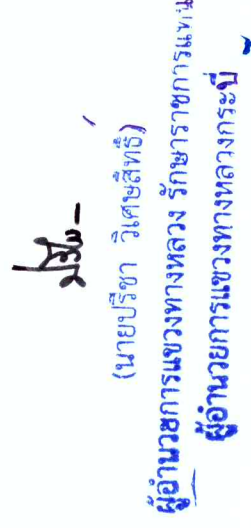 (นายปรีชา วิเศษสิทธิ์)
ผู้อำนวยการแขวงทางหลวง รักษาราชการแทน
ผู้อำนวยการแขวงทางหลวงกระบี่